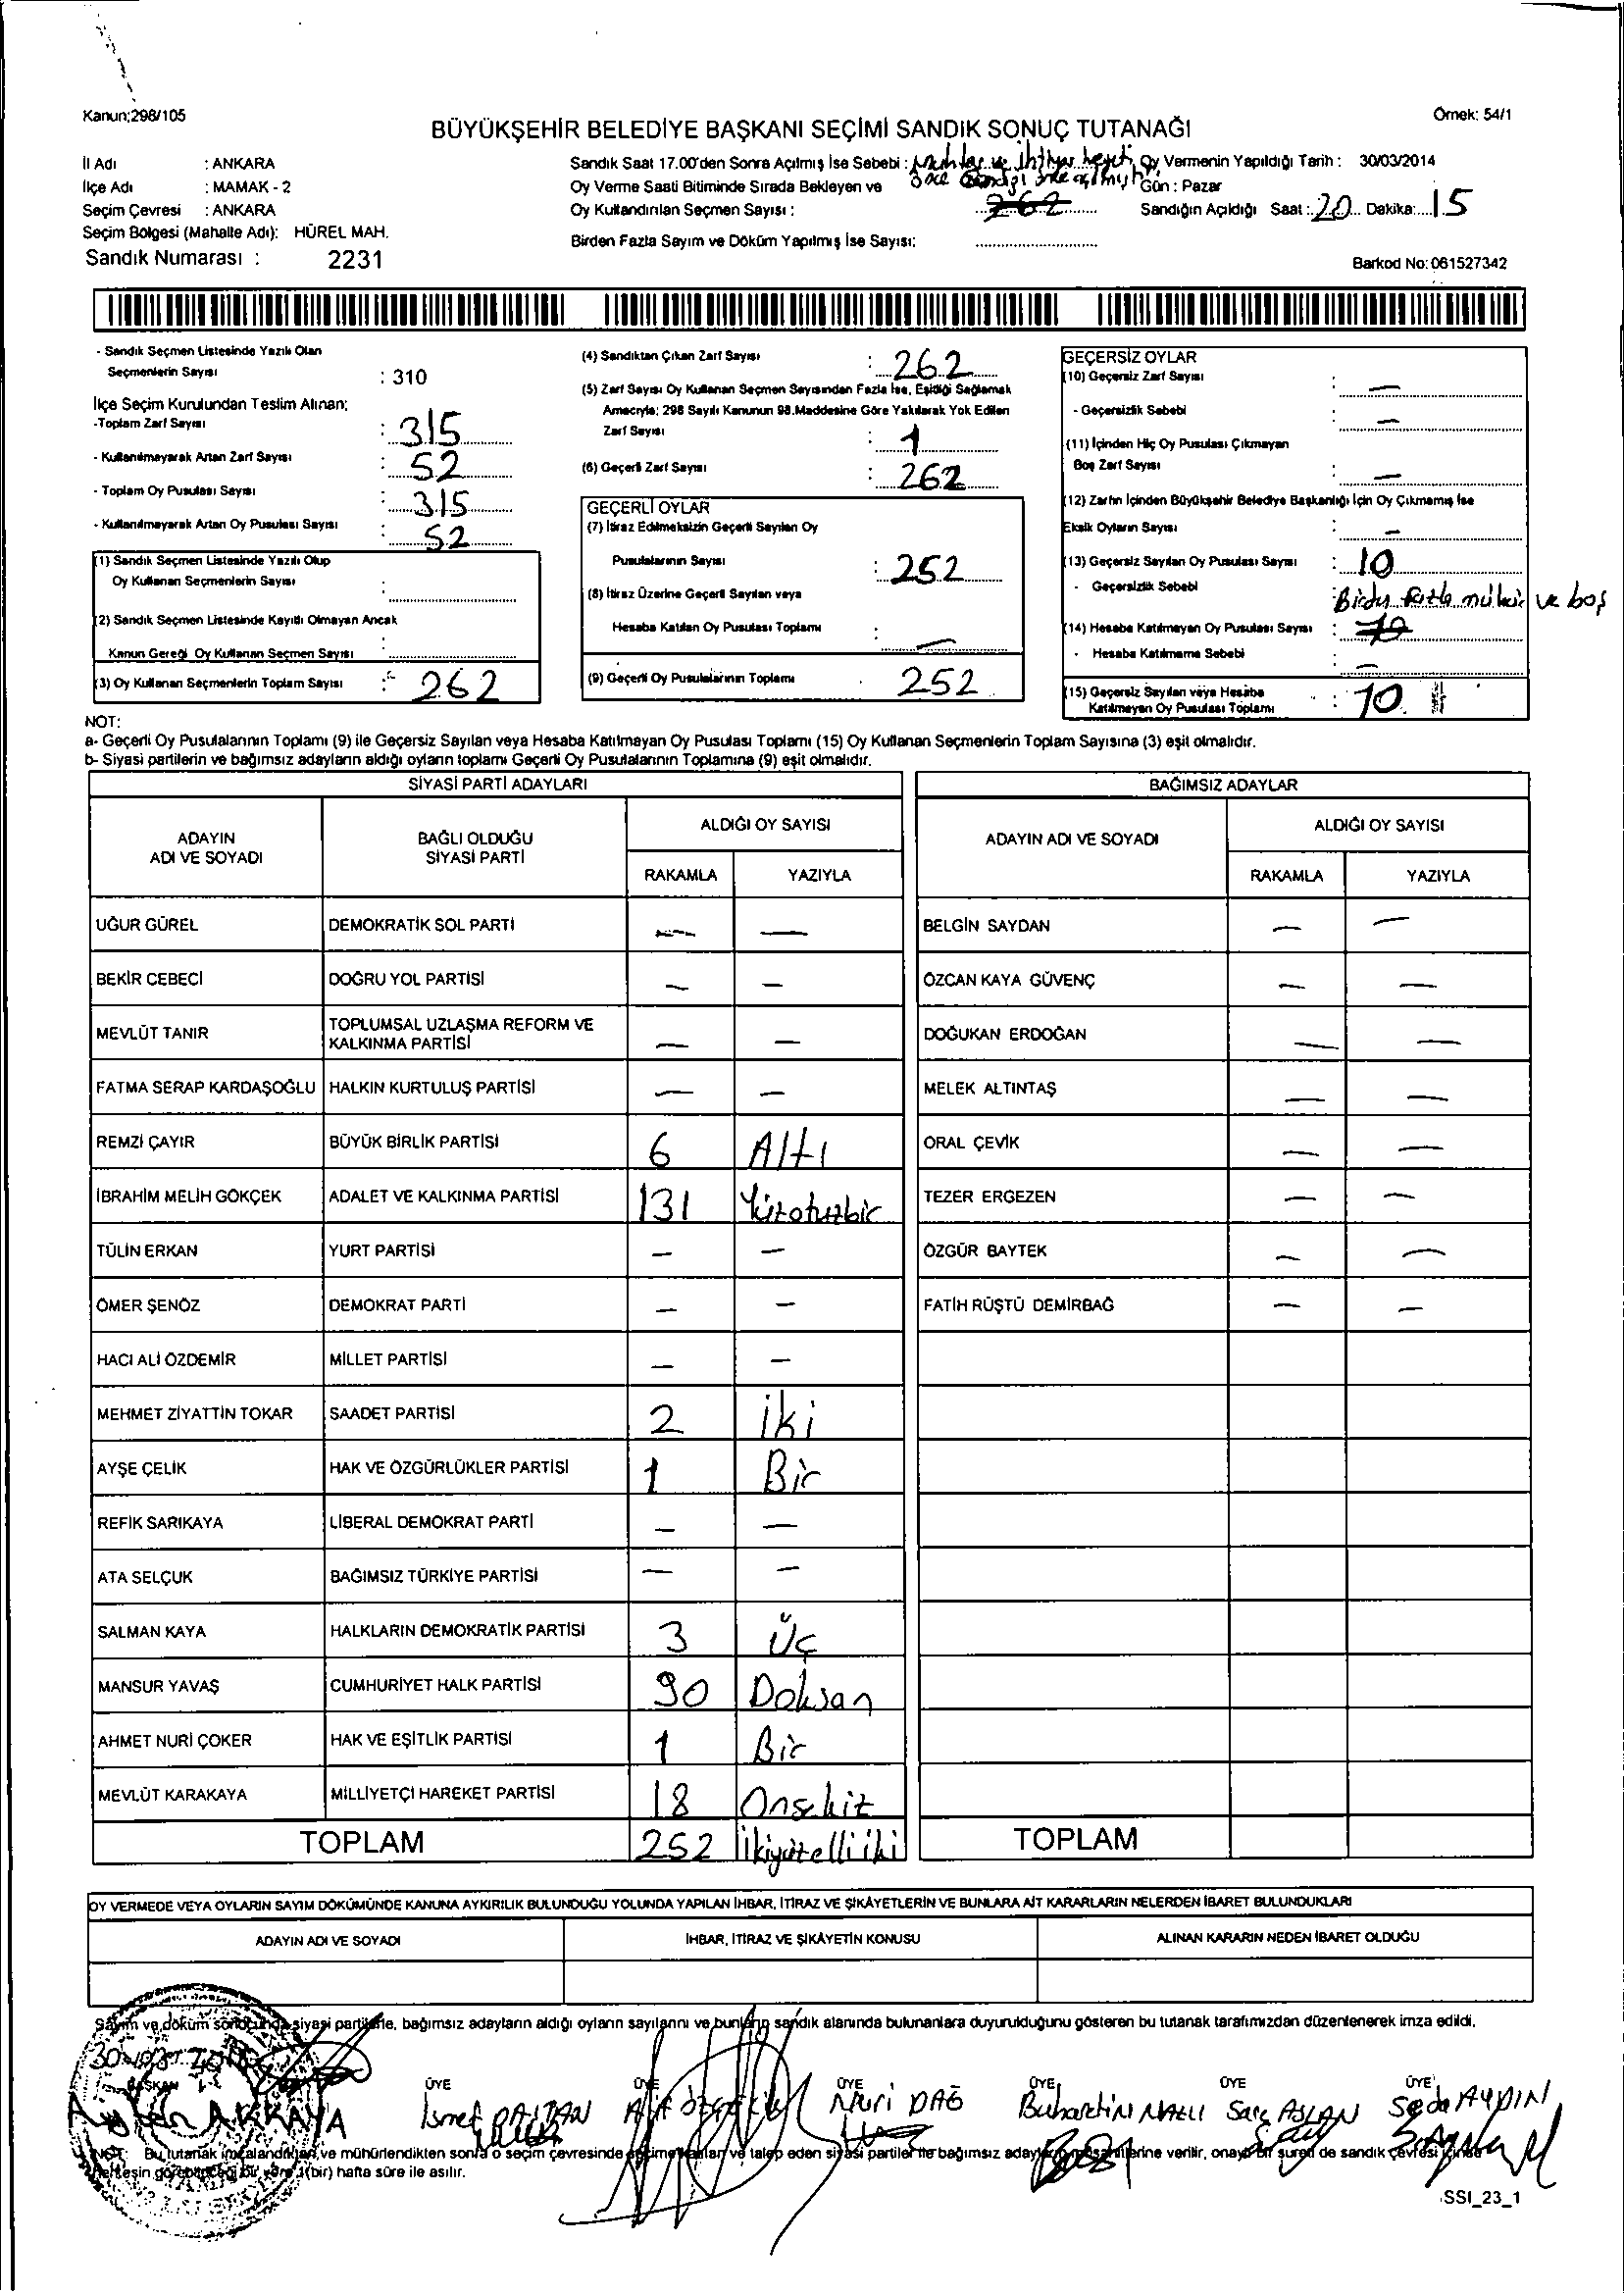 Kanun;298/105
Örnek: 54/1
BÜYÜKŞEHİR BELEDİYE BAŞKANI SEÇİMİ SANDIK SONUÇ TUTANAĞI
İl Adı : ANKARA
İlçe Adı : MAMAK - 2
Seçim Çevresi : ANKARA
Seçim Bölgesi (Mahalle Adı): HÜREL MAH.
Sandık Numarası : 2231
Sandık Saat 17.00'den Sonra Açılmış İse Sebebi : Muhtar ve ihtiyar heyeti
Oy Verme Saati Bitiminde Sırada Bekleyen ve
Oy Kullandırılan Seçmen Sayısı : 262
Birden Fazla Sayım ve Döküm Yapılmış İse Sayısı:
Oy Vermenin Yapıldığı Tarih : 30/03/2014
Gün : Pazar
Sandığın Açıldığı Saat : 20 Dakika: 15
Barkod No: 061527342
- Sandık Seçmen Listesinde Yazılı Olan
Seçmenlerin Sayısı : 310
İlçe Seçim Kurulundan Teslim Alınan;
-Toplam Zarf Sayısı : 315
- Kullanılmayarak Artan Zarf Sayısı : 52
- Toplam Oy Pusulası Sayısı : 315
- Kullanılmayarak Artan Oy Pusulası Sayısı : 52
(1) Sandık Seçmen Listesinde Yazılı Olup
Oy Kullanan Seçmenlerin Sayısı :
(2) Sandık Seçmen Listesinde Kayıtlı Olmayan Ancak
Kanun Gereği Oy Kullanan Seçmen Sayısı :
(3) Oy Kullanan Seçmenlerin Toplam Sayısı : 262
(4) Sandıktan Çıkan Zarf Sayısı : 262
(5) Zarf Sayısı Oy Kullanan Seçmen Sayısından Fazla İse, Eşitliği Sağlamak
Amacıyla; 298 Sayılı Kanunun 98.Maddesine Göre Yakılarak Yok Edilen
Zarf Sayısı : 1
(6) Geçerli Zarf Sayısı : 262
GEÇERLİ OYLAR
(7) İtiraz Edilmeksizin Geçerli Sayılan Oy
Pusulalarının Sayısı : 252
(8) İtiraz Üzerine Geçerli Sayılan veya
Hesaba Katılan Oy Pusulası Toplamı : —
(9) Geçerli Oy Pusulalarının Toplamı 252
GEÇERSİZ OYLAR
(10) Geçersiz Zarf Sayısı : —
- Geçersizlik Sebebi : —
(11) İçinden Hiç Oy Pusulası Çıkmayan
Boş Zarf Sayısı : —
(12) Zarfın İçinden Büyükşehir Belediye Başkanlığı İçin Oy Çıkmamış İse
Eksik Oyların Sayısı : —
(13) Geçersiz Sayılan Oy Pusulası Sayısı : 10
- Geçersizlik Sebebi : Birden fazla mühür ve boş
(14) Hesaba Katılmayan Oy Pusulası Sayısı : 10
- Hesaba Katılmama Sebebi : —
(15) Geçersiz Sayılan veya Hesaba
Katılmayan Oy Pusulası Toplamı : 10
NOT:
a- Geçerli Oy Pusulalarının Toplamı (9) ile Geçersiz Sayılan veya Hesaba Katılmayan Oy Pusulası Toplamı (15) Oy Kullanan Seçmenlerin Toplam Sayısına (3) eşit olmalıdır.
b- Siyasi partilerin ve bağımsız adayların aldığı oyların toplamı Geçerli Oy Pusulalarının Toplamına (9) eşit olmalıdır.
SİYASİ PARTİ ADAYLARI
ADAYIN ADI VE SOYADI
BAĞLI OLDUĞU SİYASİ PARTİ
ALDIĞI OY SAYISI
RAKAMLA YAZIYLA
UĞUR GÜREL DEMOKRATİK SOL PARTİ — —
BEKİR CEBECİ DOĞRU YOL PARTİSİ — —
MEVLÜT TANIR TOPLUMSAL UZLAŞMA REFORM VE
KALKINMA PARTİSİ — —
FATMA SERAP KARDAŞOĞLU HALKIN KURTULUŞ PARTİSİ — —
REMZİ ÇAYIR BÜYÜK BİRLİK PARTİSİ 6 Altı
İBRAHİM MELİH GÖKÇEK ADALET VE KALKINMA PARTİSİ 131 Yüzotuzbir
TÜLİN ERKAN YURT PARTİSİ — —
ÖMER ŞENÖZ DEMOKRAT PARTİ — —
HACI ALİ ÖZDEMİR MİLLET PARTİSİ — —
MEHMET ZİYATTİN TOKAR SAADET PARTİSİ 2 iki
AYŞE ÇELİK HAK VE ÖZGÜRLÜKLER PARTİSİ 1 Bir
REFİK SARIKAYA LİBERAL DEMOKRAT PARTİ — —
ATA SELÇUK BAĞIMSIZ TÜRKİYE PARTİSİ — —
SALMAN KAYA HALKLARIN DEMOKRATİK PARTİSİ 3 Üç
MANSUR YAVAŞ CUMHURİYET HALK PARTİSİ 90 Doksan
AHMET NURİ ÇOKER HAK VE EŞİTLİK PARTİSİ 1 Bir
MEVLÜT KARAKAYA MİLLİYETÇİ HAREKET PARTİSİ 18 Onsekiz
TOPLAM 252 İkiyüzelliiki
BAĞIMSIZ ADAYLAR
ADAYIN ADI VE SOYADI
ALDIĞI OY SAYISI
RAKAMLA YAZIYLA
BELGİN SAYDAN — —
ÖZCAN KAYA GÜVENÇ — —
DOĞUKAN ERDOĞAN — —
MELEK ALTINTAŞ — —
ORAL ÇEVİK — —
TEZER ERGEZEN — —
ÖZGÜR BAYTEK — —
FATİH RÜŞTÜ DEMİRBAĞ — —
TOPLAM
OY VERMEDE VEYA OYLARIN SAYIM DÖKÜMÜNDE KANUNA AYKIRILIK BULUNDUĞU YOLUNDA YAPILAN İHBAR, İTİRAZ VE ŞİKÂYETLERİN VE BUNLARA AİT KARARLARIN NELERDEN İBARET BULUNDUKLARI
ADAYIN ADI VE SOYADI
İHBAR, İTİRAZ VE ŞİKÂYETİN KONUSU
ALINAN KARARIN NEDEN İBARET OLDUĞU
Sayım ve döküm sonucunda siyasi partilerle, bağımsız adayların aldığı oyların sayılarını ve bunların sandık alanında bulunanlara duyurulduğunu gösteren bu tutanak tarafımızdan düzenlenerek imza edildi.
BAŞKAN ÜYE ÜYE ÜYE ÜYE ÜYE ÜYE
AKKAYA İsmet Nuri DAĞ ASLAN Seda AYDIN
NOT: Bu tutanak imzalandıktan ve mühürlendikten sonra o seçim çevresinde seçime katılan ve talep eden siyasi partiler ile bağımsız aday müşahitlerine verilir, onaylı bir sureti de sandık çevresi içinde
herkesin görebileceği bir yere 1(bir) hafta süre ile asılır.
SSI_23_1